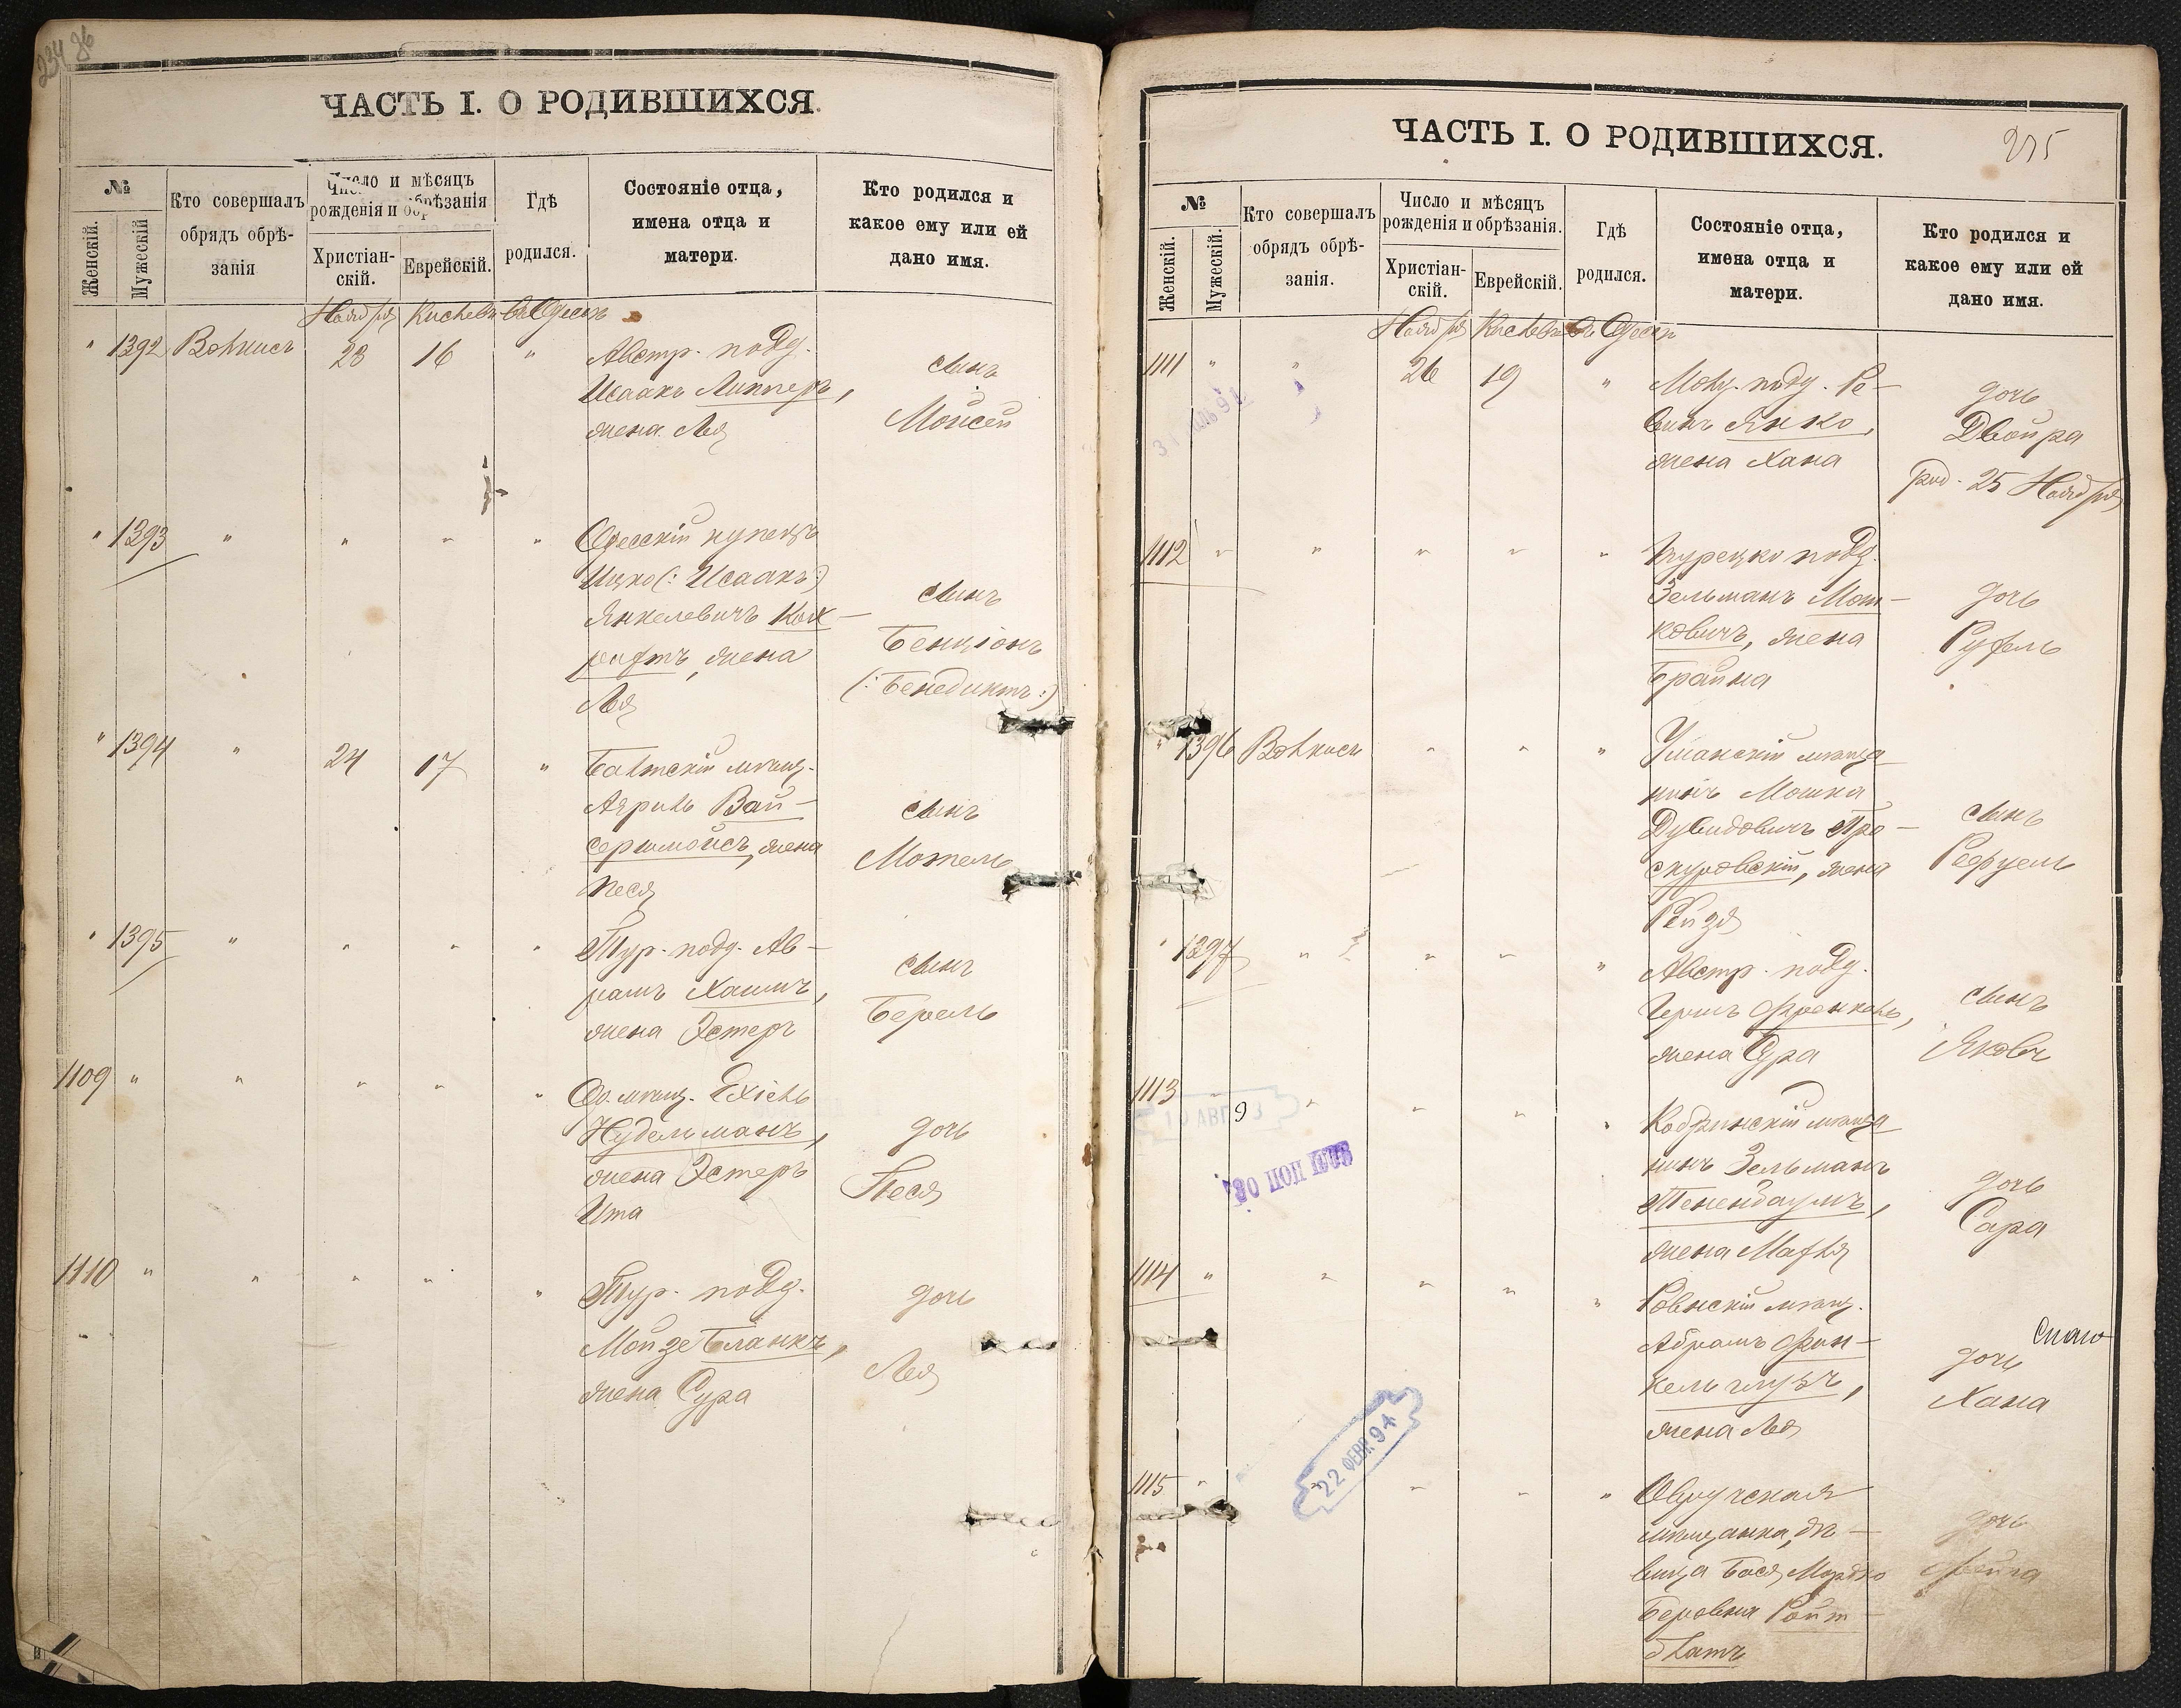 ЧАСТЬ I. О РОДИВШИХСЯ.
№
Женскій.
Мужескій
Кто совершалъ обрядъ обрѣ-занія
Число и мѣсяцъ рожденія и обрѣзанія
Христіан-скій.
Еврейскій.
Гдѣ родился.
Состояніе отца, имена отца и матери.
Кто родился и какое ему или ей дано имя.
Ноября Кислевъ въ Одессѣ
" 1392 23 16 " Австр. подд.
Исаакъ Липперъ,
жена Лея
сынъ
Мойсей
" 1393 " " " " Одесскій купецъ
Ицко (: Исаакъ :)
Янкелевичъ
жена
Лея
сынъ
Бенціонъ
(: Бенедиктъ :)
" 1394 " 24 17 " Балтскій мѣщ.
Вай-
жена
Песя
сынъ
Мотель
" 1395 " " " " Тур. подд. Ав-
рамъ Хаимъ,
жена Эстеръ
сынъ
Берель
1109 " " " " " Од. мѣщ. Ехіель
Нудельманъ,
жена Эстеръ
Ита
дочь
Песя
1110 " " " " " Тур. подд.
Мойзе Бланкъ,
жена Сура
дочь
Лея
ЧАСТЬ I. О РОДИВШИХСЯ.
№
Женскій.
Мужескій.
Кто совершалъ обрядъ обрѣ-занія.
Число и мѣсяцъ рожденія и обрѣзанія.
Христіан-скій.
Еврейскій.
Гдѣ родился.
Состояніе отца, имена отца и матери.
Кто родился и какое ему или ей дано имя.
Ноября Кислевъ въ Одессѣ
1111 " " 26 19 " подд. Ре-
винъ Янко,
жена Хана
дочь
Двойра
род. 25 Ноября
1112 " " " " " Турецко подд.
Зельманъ Мош-
ковичъ, жена
Брайна
дочь
Рухель
" 1396 " " " Уманскій мѣща
нинъ Мошка
Дувидовичъ Про-
скуровскій, жена
Рейзя
сынъ
" 1397 " " " " Австр. подд.
Гершъ Френкель,
жена Сура
сынъ
Яковъ
1113 " " " " Кобринскій мѣща
нинъ Зельманъ
Тененбаумъ,
жена Махля
дочь
Сара
1114 " " " " " Ровенскій мѣщ.
Абрамъ Фин-
жена Лея
дочь
Хана
22 ФЕВР. 94
1115 " " " " Овручская
мѣщанка, дѣ-
вица Бася
Беровна Ройт-
блатъ
дочь
Фейга